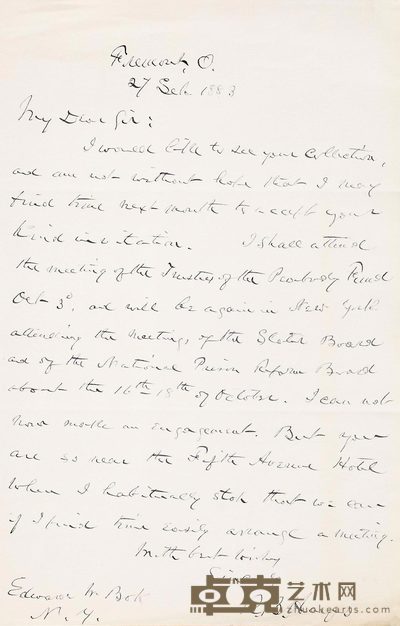 Fremont, O.
27 Sep 1883
My Dear Sir:
I would like to see your collection,
and am not without hope that I may
find time next month to accept your
kind invitation. I shall attend
the meeting of the Trustees of the Peabody Fund
Oct 3d, and will be again in New York
attending the meetings of the Slater Board
and of the National Prison Reform Board
about the 16th-19th of October. I can not
now make an engagement. But you
are so near the Fifth Avenue Hotel
where I habitually stop that we can
if I find time easily arrange a meeting.
With best wishes
Sincerely
R. B. Hayes
Edward W Bok
N. Y.
艺术网
www.artxun.com